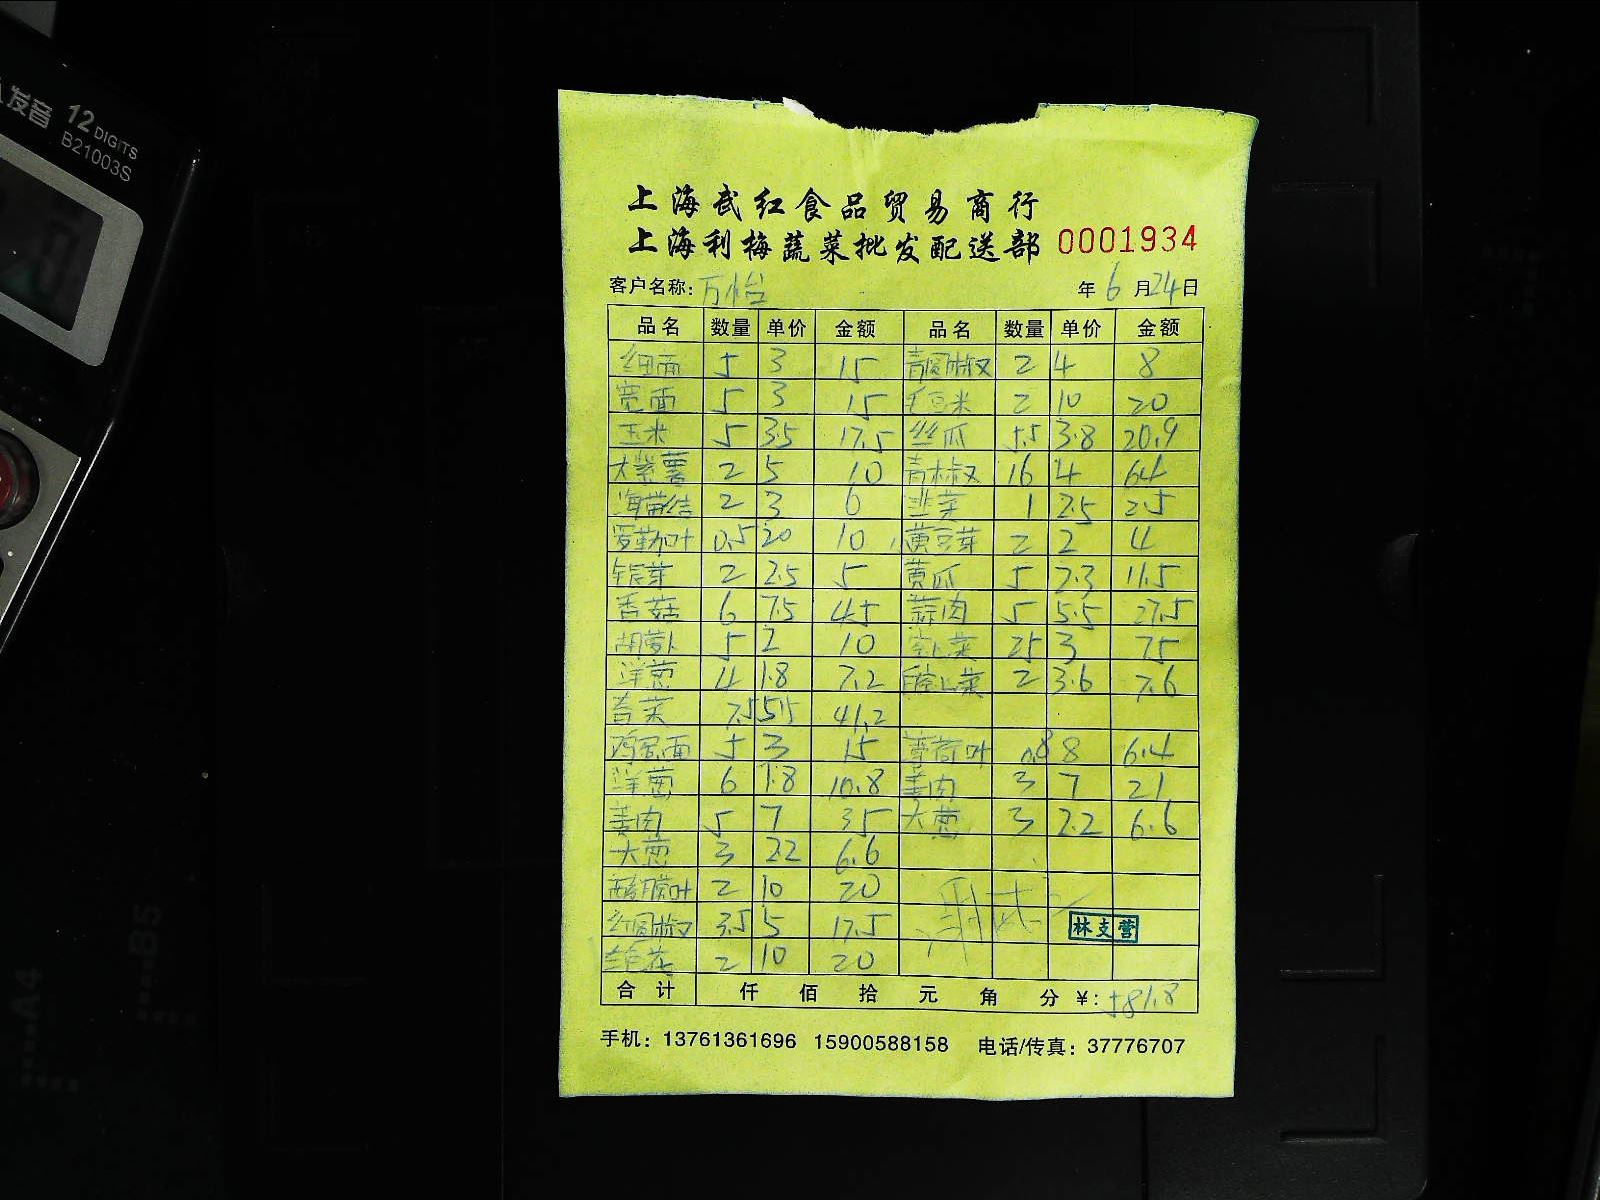 发音 12 DIGITS
B21003S
上海武红食品贸易商行
上海利梅蔬菜批发配送部 0001934
客户名称: 万怡 年 6 月 24 日
品名 数量 单价 金额 品名 数量 单价 金额
细面 5 3 15 青圆椒 2 4 8
宽面 5 3 15 毛豆米 2 10 20
玉米 5 3.5 17.5 丝瓜 5.5 3.8 20.9
大紫薯 2 5 10 青木椒 16 4 64
海带结 2 3 6 韭菜 1 2.5 2.5
罗勒叶 0.5 20 10 黄豆芽 2 2 4
银芽 2 2.5 5 黄瓜 5 2.3 11.5
香菇 6 7.5 45 蒜肉 5 5.5 27.5
胡萝卜 5 2 10 空心菜 25 3 75
洋葱 4 1.8 7.2 2 3.6 7.6
7.5 5.5 41.2
鸡蛋面 5 3 15 薄荷叶 0.8 8 6.4
洋葱 6 1.8 10.8 姜肉 3 7 21
姜肉 5 7 35 大葱 3 2.2 6.6
大葱 3 2.2 6.6
2 10 20
红圆椒 3.5 5 17.5
林支营
2 10 20
合计 仟 佰 拾 元 角 分 ¥: 581.8
手机: 13761361696 15900588158 电话/传真: 37776707
A4
B5